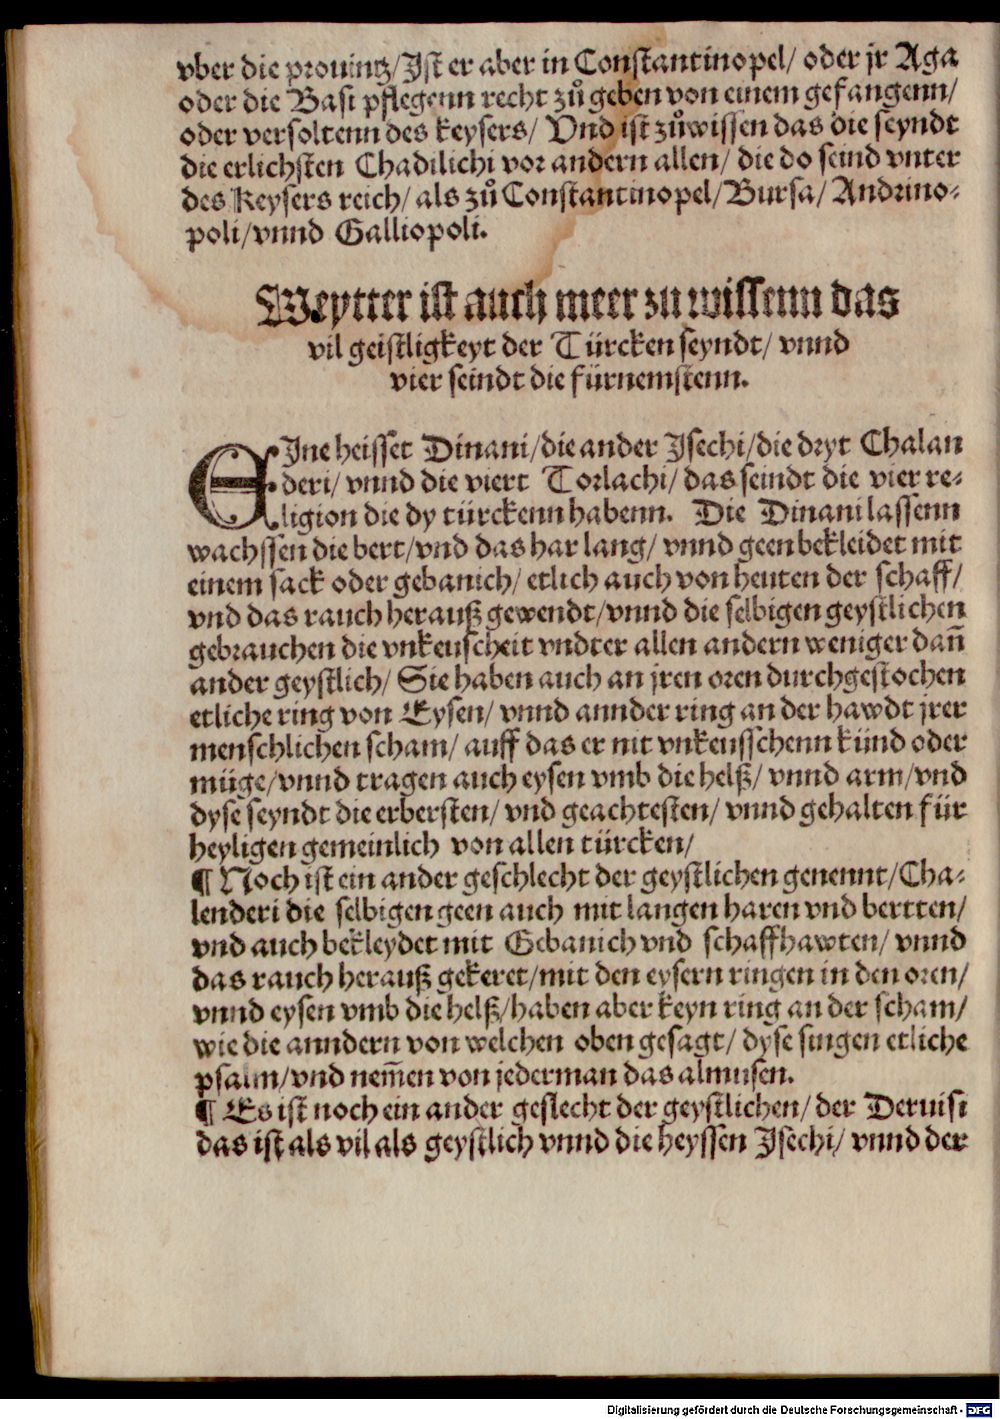 vber die prouintz/Ist er aber in Constantinopel/ oder jr Aga
oder die Basi pflegenn recht zů geben von einem gefangenn/
oder versoltenn des keysers/ Vnd ist zůwissen das die seyndt
die erlichsten Chadilichi vor andern allen/ die do seind vnter
des Keysers reich/ als zů Constantinopel/ Bursa/ Andrino⸗
poli/vnnd Galliopoli.
Weytter ist auch meer zu wissenn das
vil geistligkeyt der Türcken seyndt/ vnnd
vier seindt die fürnemstenn.
EIne heisset Dinani/die ander Isechi/die dryt Chalan
deri/ vnnd die viert Torlachi/ das seindt die vier re⸗
ligion die dy türckenn habenn. Die Dinani lassenn
wachssen die bert/vnd das har lang/ vnnd geen bekleidet mit
einem sack oder gebanich/ etlich auch von heuten der schaff/
vnd das rauch herauß gewendt/vnnd die selbigen geystlichen
gebrauchen die vnkeuscheit vndter allen andern weniger dañ
ander geystlich/ Sie haben auch an jren oren durchgestochen
etliche ring von Eysen/ vnnd annder ring an der hawdt jrer
menschlichen scham/ auff das er nit vnkeusschenn künd oder
müge/vnnd tragen auch eysen vmb die helß/ vnnd arm/vnd
dyse seyndt die erbersten/ vnd geachtesten/ vnnd gehalten für
heyligen gemeinlich von allen türcken/
¶ Noch ist ein ander geschlecht der geystlichen genennt/Cha⸗
lenderi die selbigen geen auch mit langen haren vnd bertten/
vnd auch bekleydet mit Gebanich vnd schaffhawten/ vnnd
das rauch herauß gekeret/mit den eysern ringen in den oren/
vnnd eysen vmb die helß/haben aber keyn ring an der scham/
wie die anndern von welchen oben gesagt/ dyse singen etliche
psalm/vnd nem̃en von jederman das almusen.
¶ Es ist noch ein ander geslecht der geystlichen/ der Deruisi
das ist als vil als geystlich vnnd die heyssen Isechi/ vnnd der
Digitalisierung gefördert durch die Deutsche Forschungsgemeinschaft - DFG